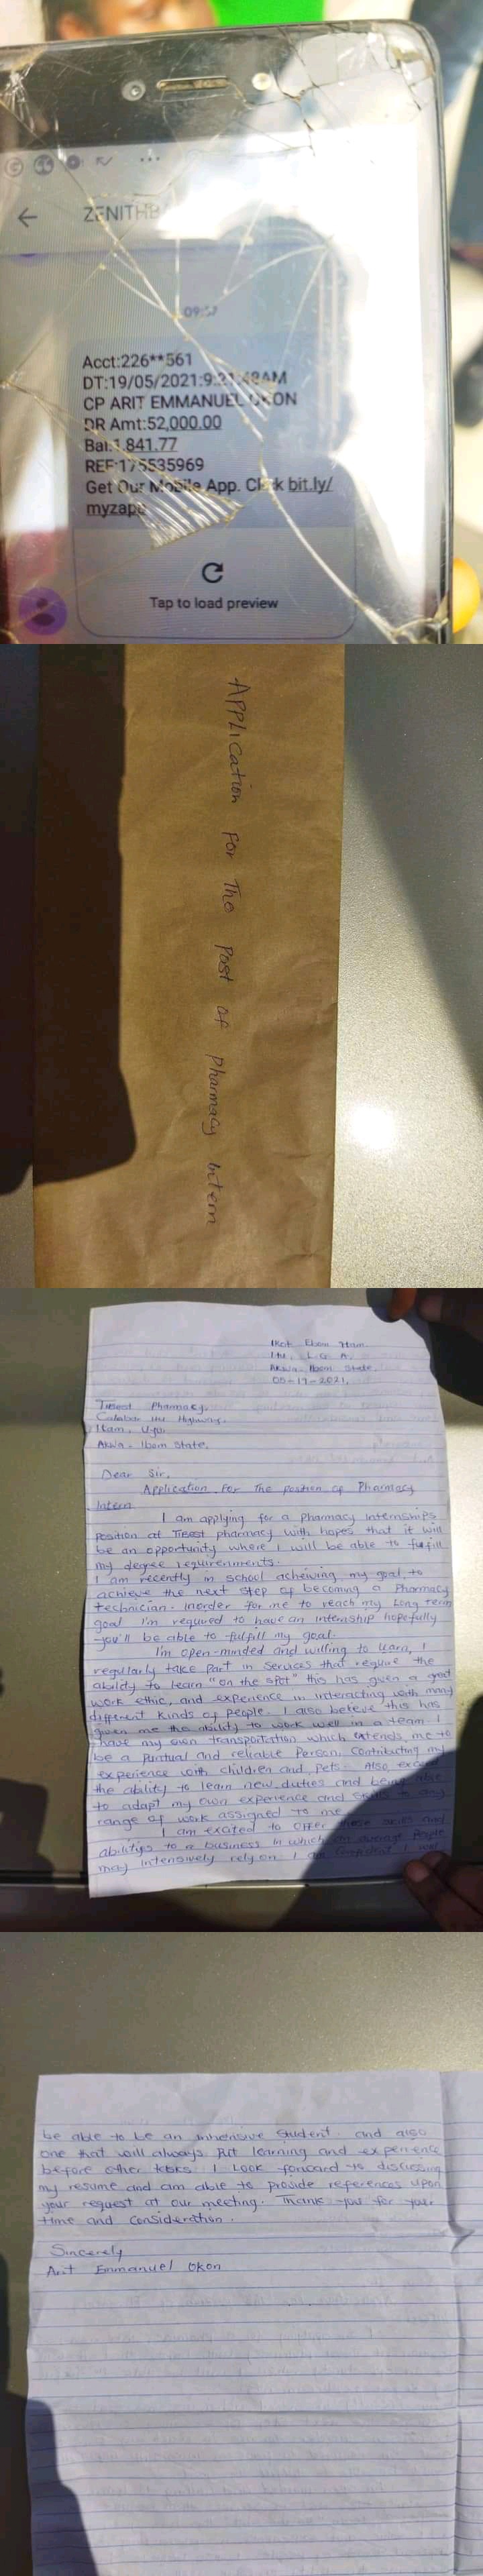 ZENITHB
09:57
Acct:226**561
DT:19/05/2021:9:21:48AM
CP ARIT EMMANUEL OKON
DR Amt:52,000.00
Bal:1,841.77
REF:175535969
Get Our Mobile App. Click bit.ly/
myzapp
Tap to load preview
Application For The Post of Pharmacy Intern
Ikot Ebom Itam
Itu, L.G.A,
Akwa Ibom State,
05-19-2021.
Pharmacy,
Calabar Itu Highway,
Itam, Uyo,
Akwa-Ibom State.
Dear Sir,
Application For The Position of Pharmacy
Intern
I am applying for a Pharmacy Internships
Position at pharmacy with hopes that it will
be an opportunity where I will be able to fulfill
my degree requirenments.
I am recently in school acheiving my goal to
achieve the next step of becoming a Pharmacy
technician. Inorder for me to reach my Long Term
goal I'm required to have an intenship hopefully
you'll be able to fulfill my goal.
I'm open-minded and willing to learn, I
regularly take part in services that require the
ability to learn "on the spot" this has given a great
work ethic, and experience in interacting with many
different kinds of people. I also believe this has
given me the ability to work well in a team. I
have my own transportation which extends me to
be a Punctual and reliable Person, Contributing my
experience with children and pets. Also
the ability to learn new duties and being able
to adapt my own experience and skills to any
range of work assigned to me
I am excited to offer these skills and
abilitys to a business in which people
may intensively rely on. I
be able to be an student and also
one that will always Put learning and experience
before other tasks. I Look forward to discussing
my resume and am able to provide references upon
your request at our meeting. Thank you for your
time and consideration.
Sincerely
Arit Emmanuel Okon